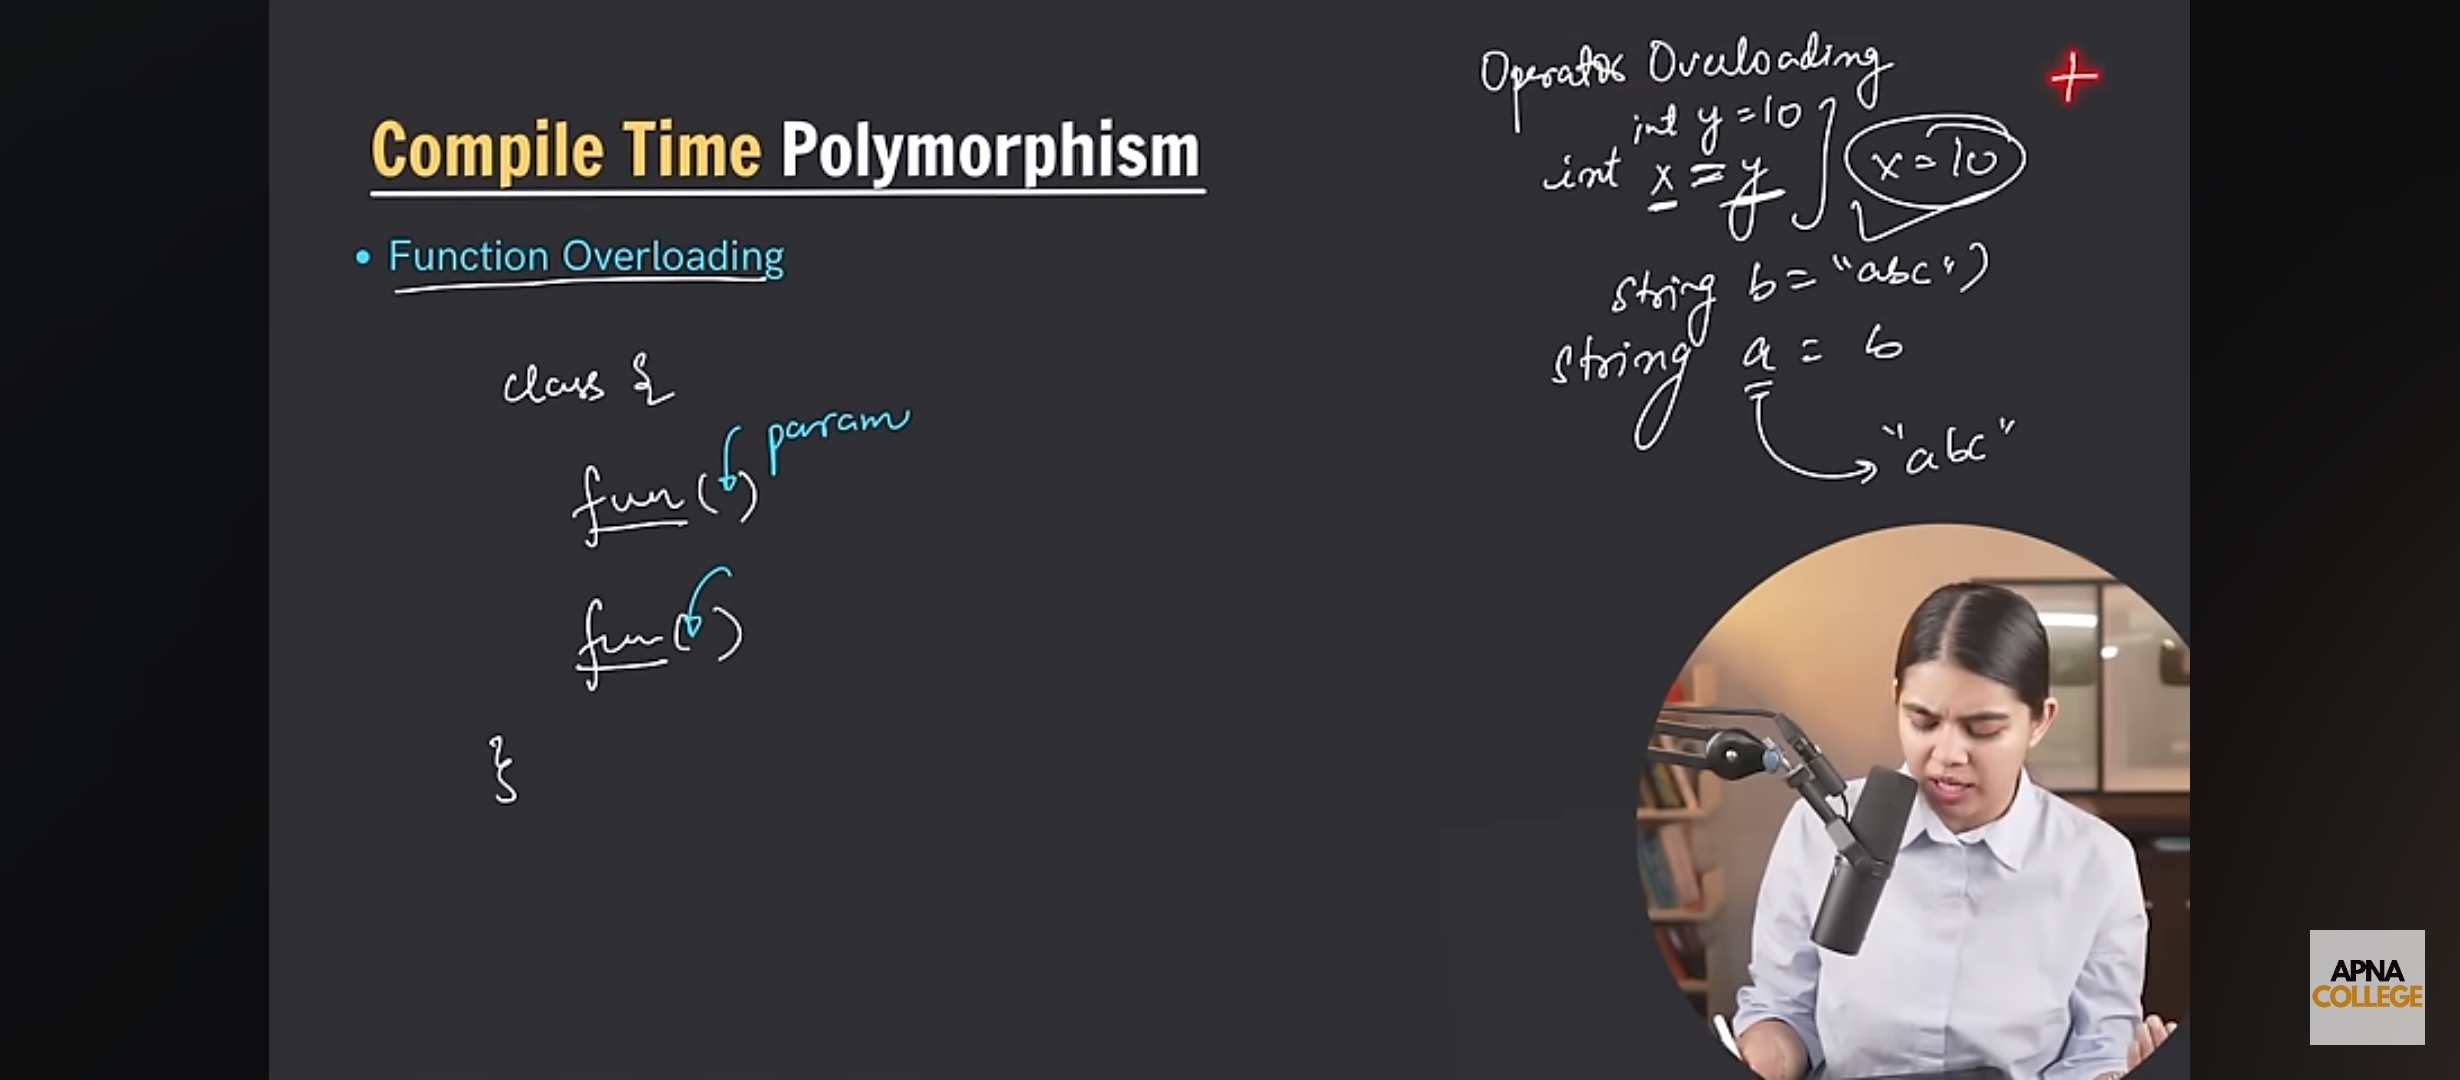 Compile Time Polymorphism
• Function Overloading
class {
fun( ) param
fun( )
}
Operator Overloading
int y = 10
int x = y
x = 10
string b = "abc")
string a = b
"abc"
+
APNA
COLLEGE